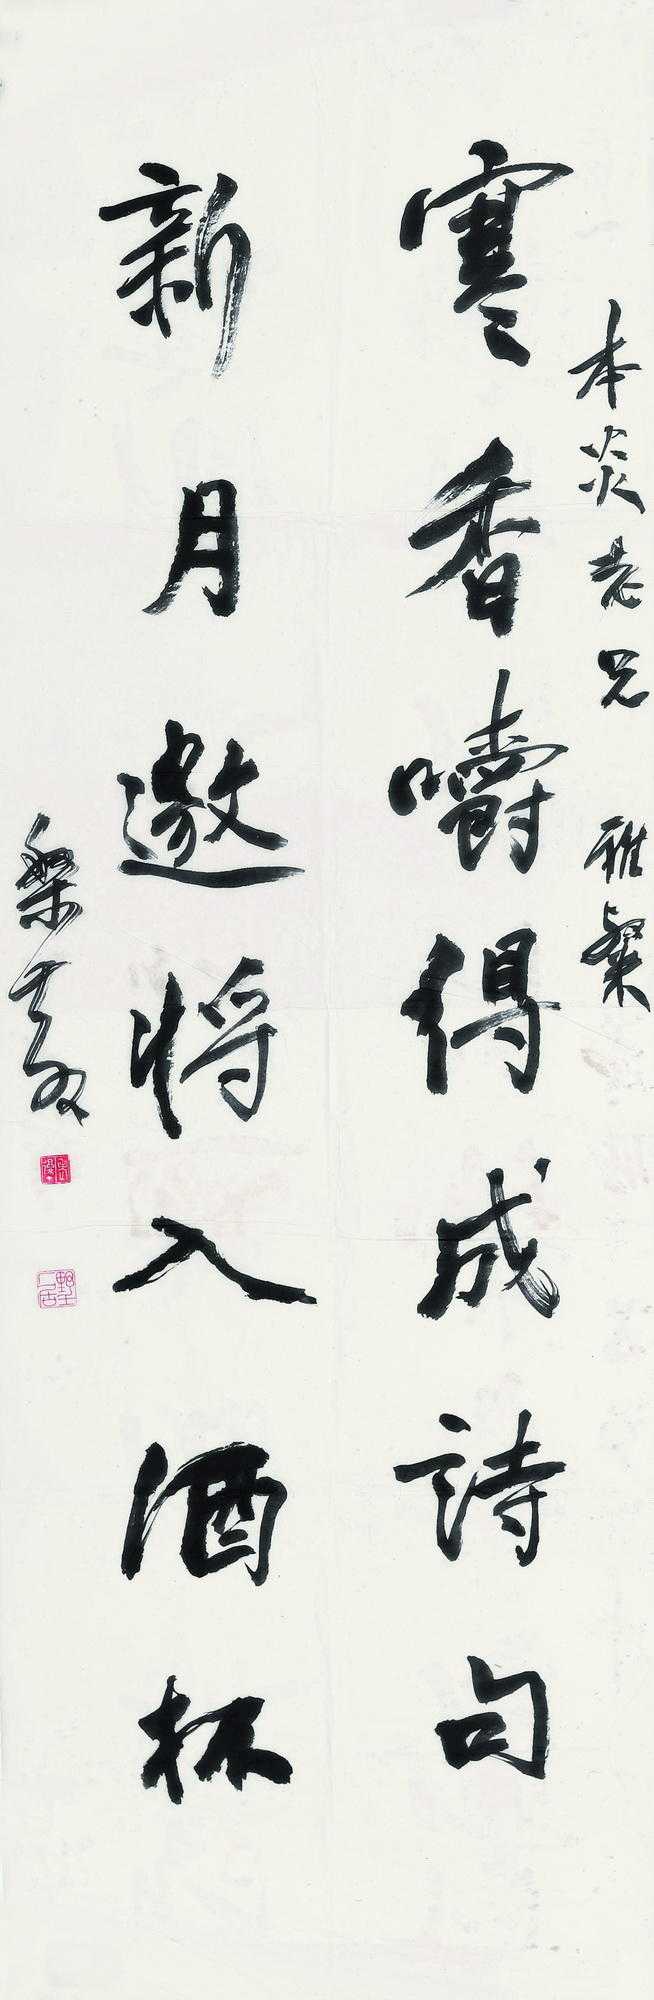 本炎老兄 雅粲
寒香嚼得成詩句
新月邀將入酒杯